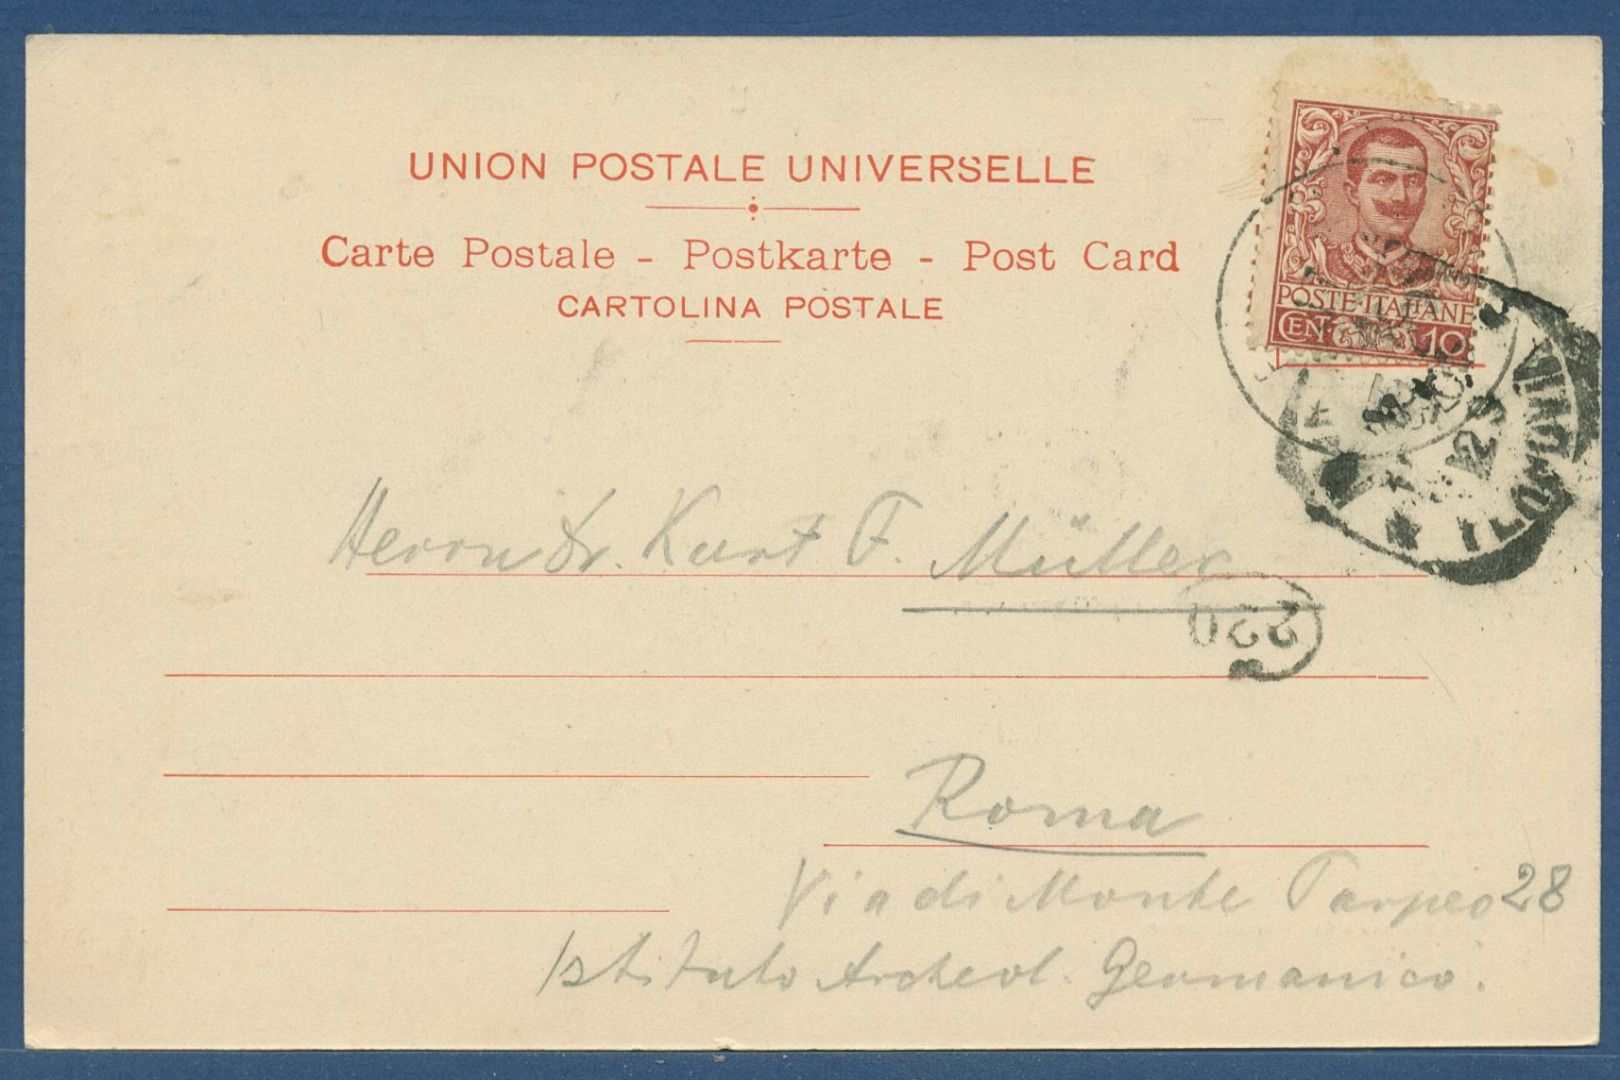 UNION POSTALE UNIVERSELLE
Carte Postale - Postkarte - Post Card
CARTOLINA POSTALE
POSTE·ITALIANE
CEN. 10
Herrn Dr. Kurt F. Müller
220
Roma
Via di Monte Tarpeo 28
Istituto Archeol. Germanico.